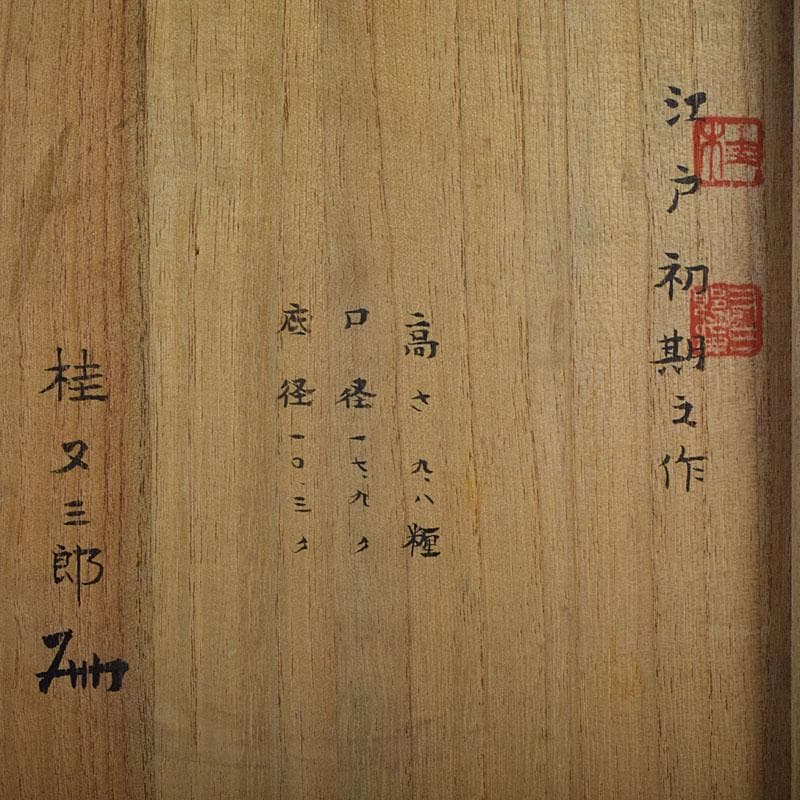 江戸初期之作
高さ九、八糎
口径一七、九〃
底径一〇、三〃
桂又三郎
桂